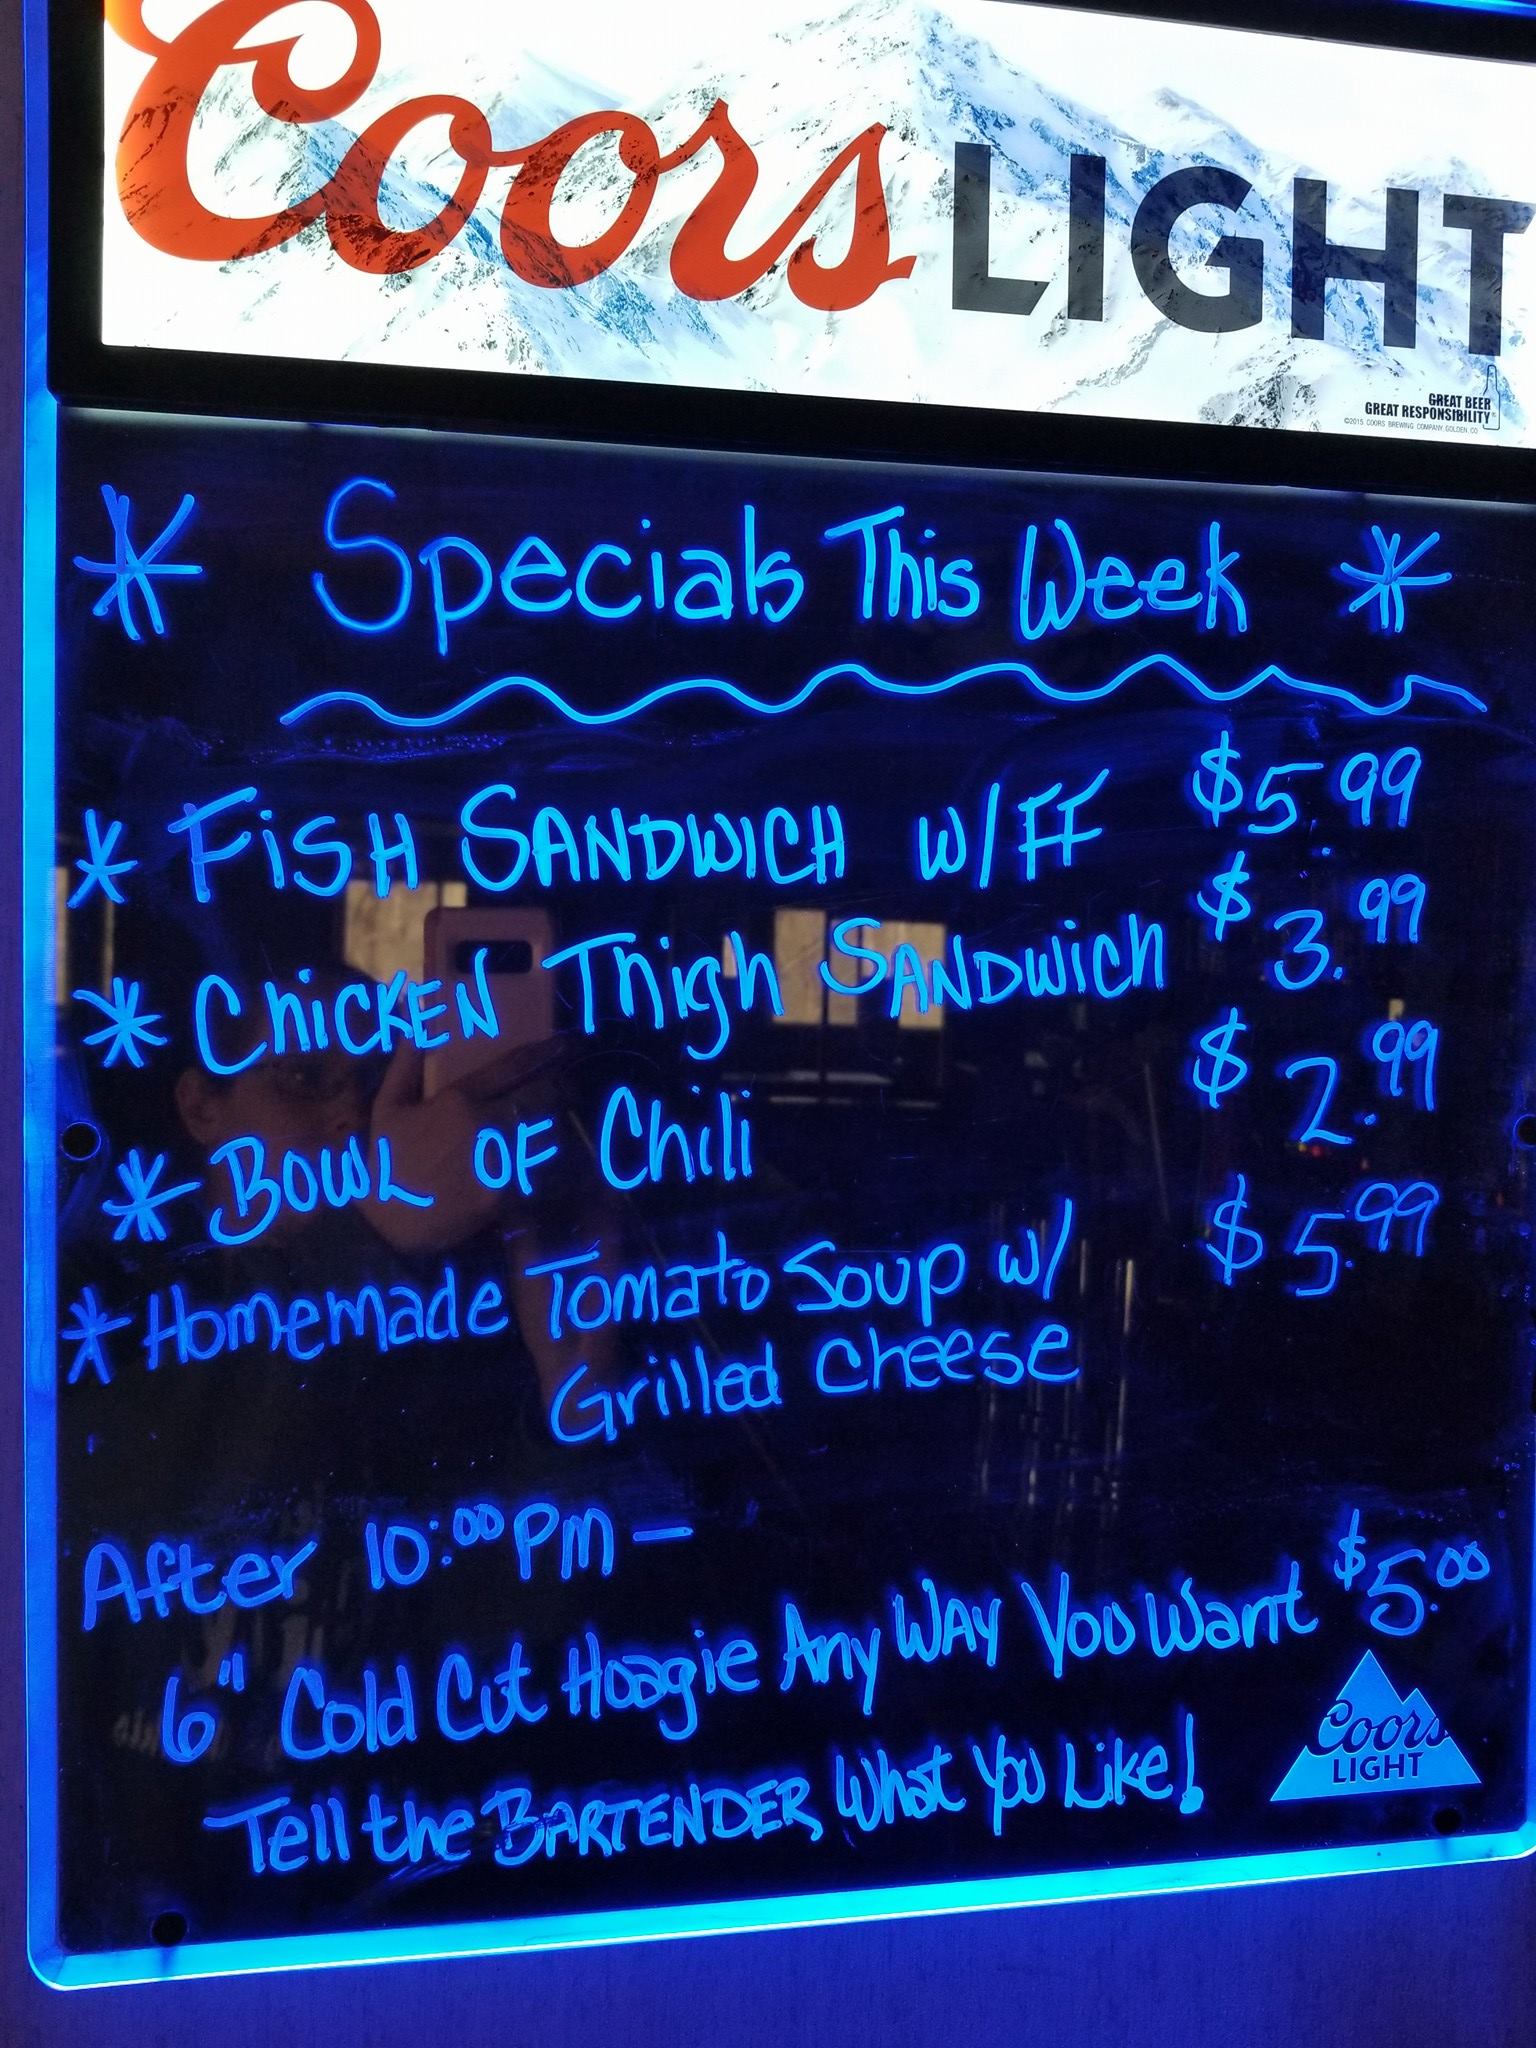 Coors LIGHT
GREAT BEER
GREAT RESPONSIBILITY
©2015 COORS BREWING COMPANY, GOLDEN, CO
* Specials This Week *
* FiSH SANDWICH W/FF $5.99
* ChicKEN Thigh SANDWich $3.99
* BOWL OF Chili $2.99
* Homemade Tomato Soup w/ $5.99
Grilled Cheese
After 10:00 PM —
6" Cold Cut Hoagie Any WAY You Want $5.00
Tell the BARTENDER What You Like!
Coors
LIGHT